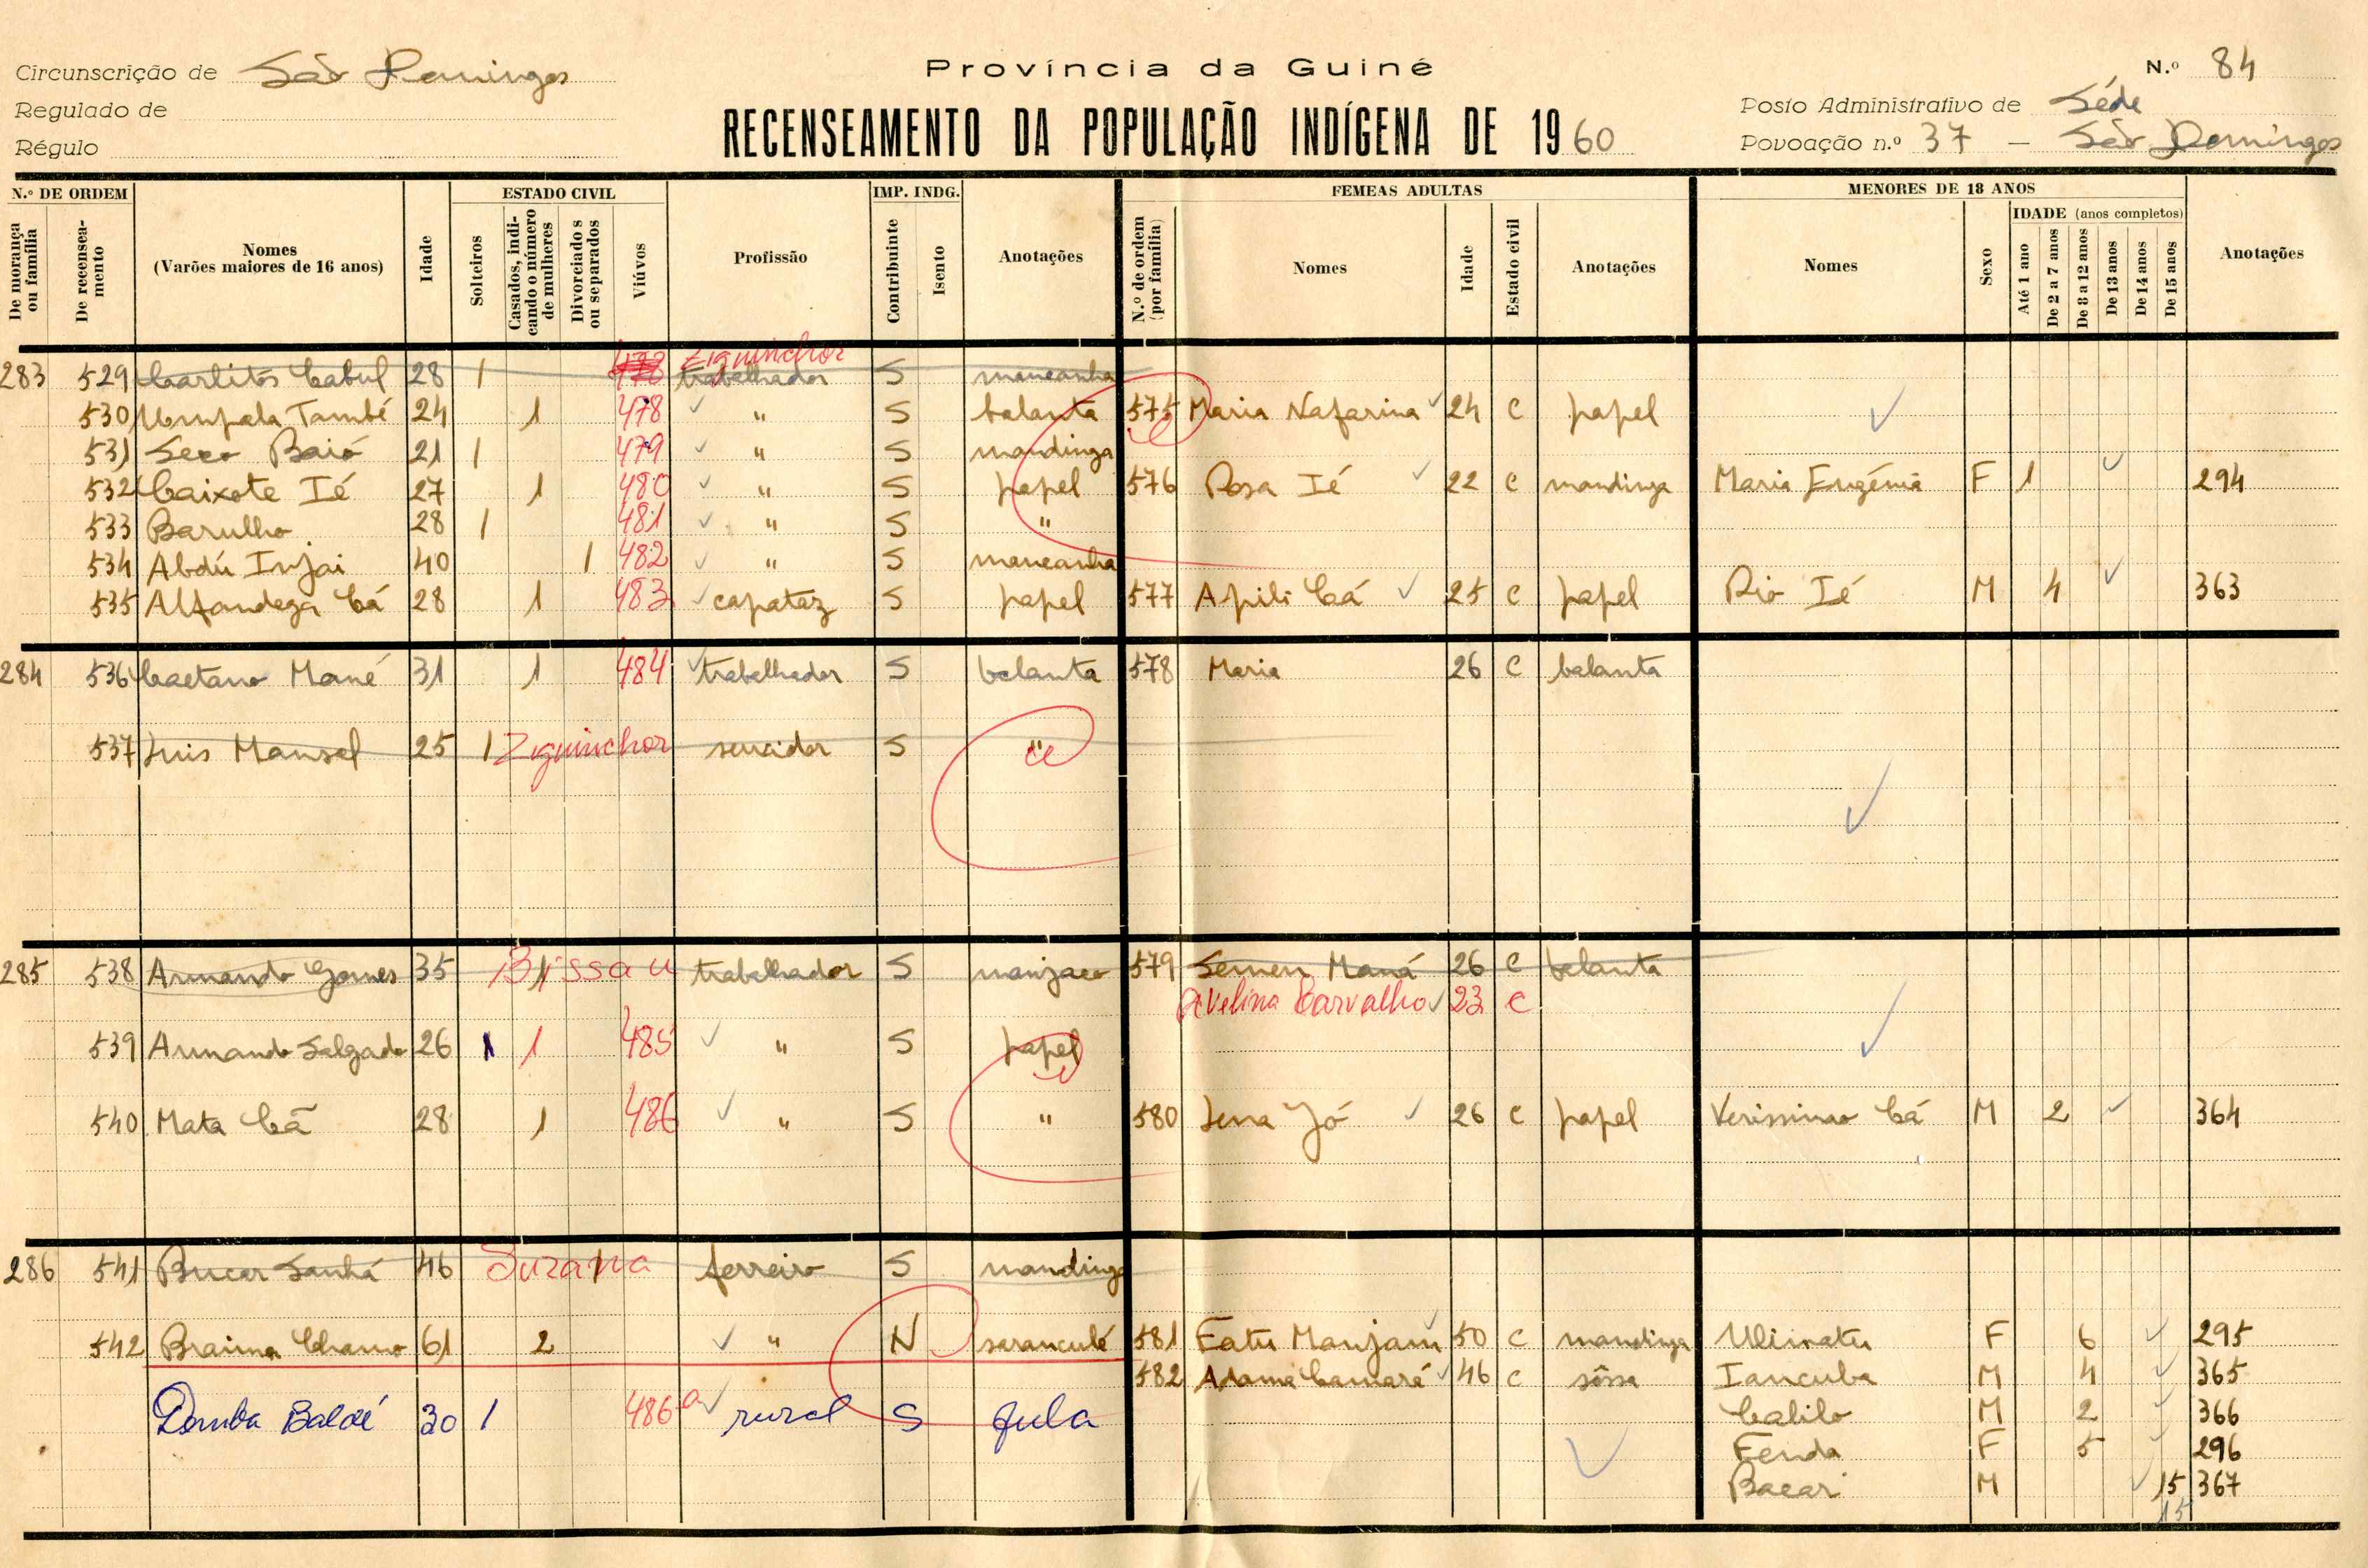 Circunscrição de São Domingos
Regulado de
Régulo
Província da Guiné
RECENSEAMENTO DA POPULAÇÃO INDÍGENA DE 1960
N.º 84
Posto Administrativo de Séde
Povoação n.º 37 — São Domingos
N.º DE ORDEM
De morança ou família
De recenseamento
Nomes
(Varões maiores de 16 anos)
Idade
ESTADO CIVIL
Solteiros
Casados, indicando o número de mulheres
Divorciados ou separados
Viúvos
Profissão
IMP. INDG.
Contribuinte
Isento
Anotações
FEMEAS ADULTAS
N.º de ordem (por família)
Nomes
Idade
Estado civil
Anotações
MENORES DE 18 ANOS
Nomes
Sexo
IDADE (anos completos)
Até 1 ano
De 2 a 7 anos
De 8 a 12 anos
De 13 anos
De 14 anos
De 15 anos
Anotações
Ziguinchor
283 529 Carlitos Cabul 28 1 478 trabalhador S mancanha
530 També 24 1 478 " S balanta 575 Maria Nafarina 24 C papel
531 Seco Baió 21 1 479 " S mandinga
532 Caixote Ié 27 1 480 " S papel 576 Rosa Ié 22 C mandinga Maria Eugénia F 1 294
533 Barulho 28 1 481 " S "
534 Abdú Injai 40 1 482 " S mancanha
535 Alfandega Cá 28 1 483 capataz S papel 577 Apili Cá 25 C papel Rio Ié M 4 363
284 536 Caetano Mané 31 1 484 trabalhador S balanta 578 Maria 26 C balanta
537 Luis Mansal 25 1 Ziguinchor servidor S "
285 538 Armando Gomes 35 1 Bissau trabalhador S manjaco 579 Semen Maná 26 C balanta
Avelina Carvalho 23 C
539 Armando Salgado 26 1 1 485 " S papel
540 Mata Cá 28 1 486 " S " 580 Lena Jó 26 C papel Verissimo Cá M 2 364
286 541 Bucar Sanhá 46 Suzana ferreiro S mandinga
542 Braima Chamo 61 2 " N saranculé 581 Fatu Manjam 50 C mandinga Ulimatu F 6 295
582 Adama Camará 46 C sôssa Iancuba M 4 365
Demba Baldé 30 1 486a rural S fula Calilo M 2 366
Fenda F 5 296
Bacar M 15 367
15